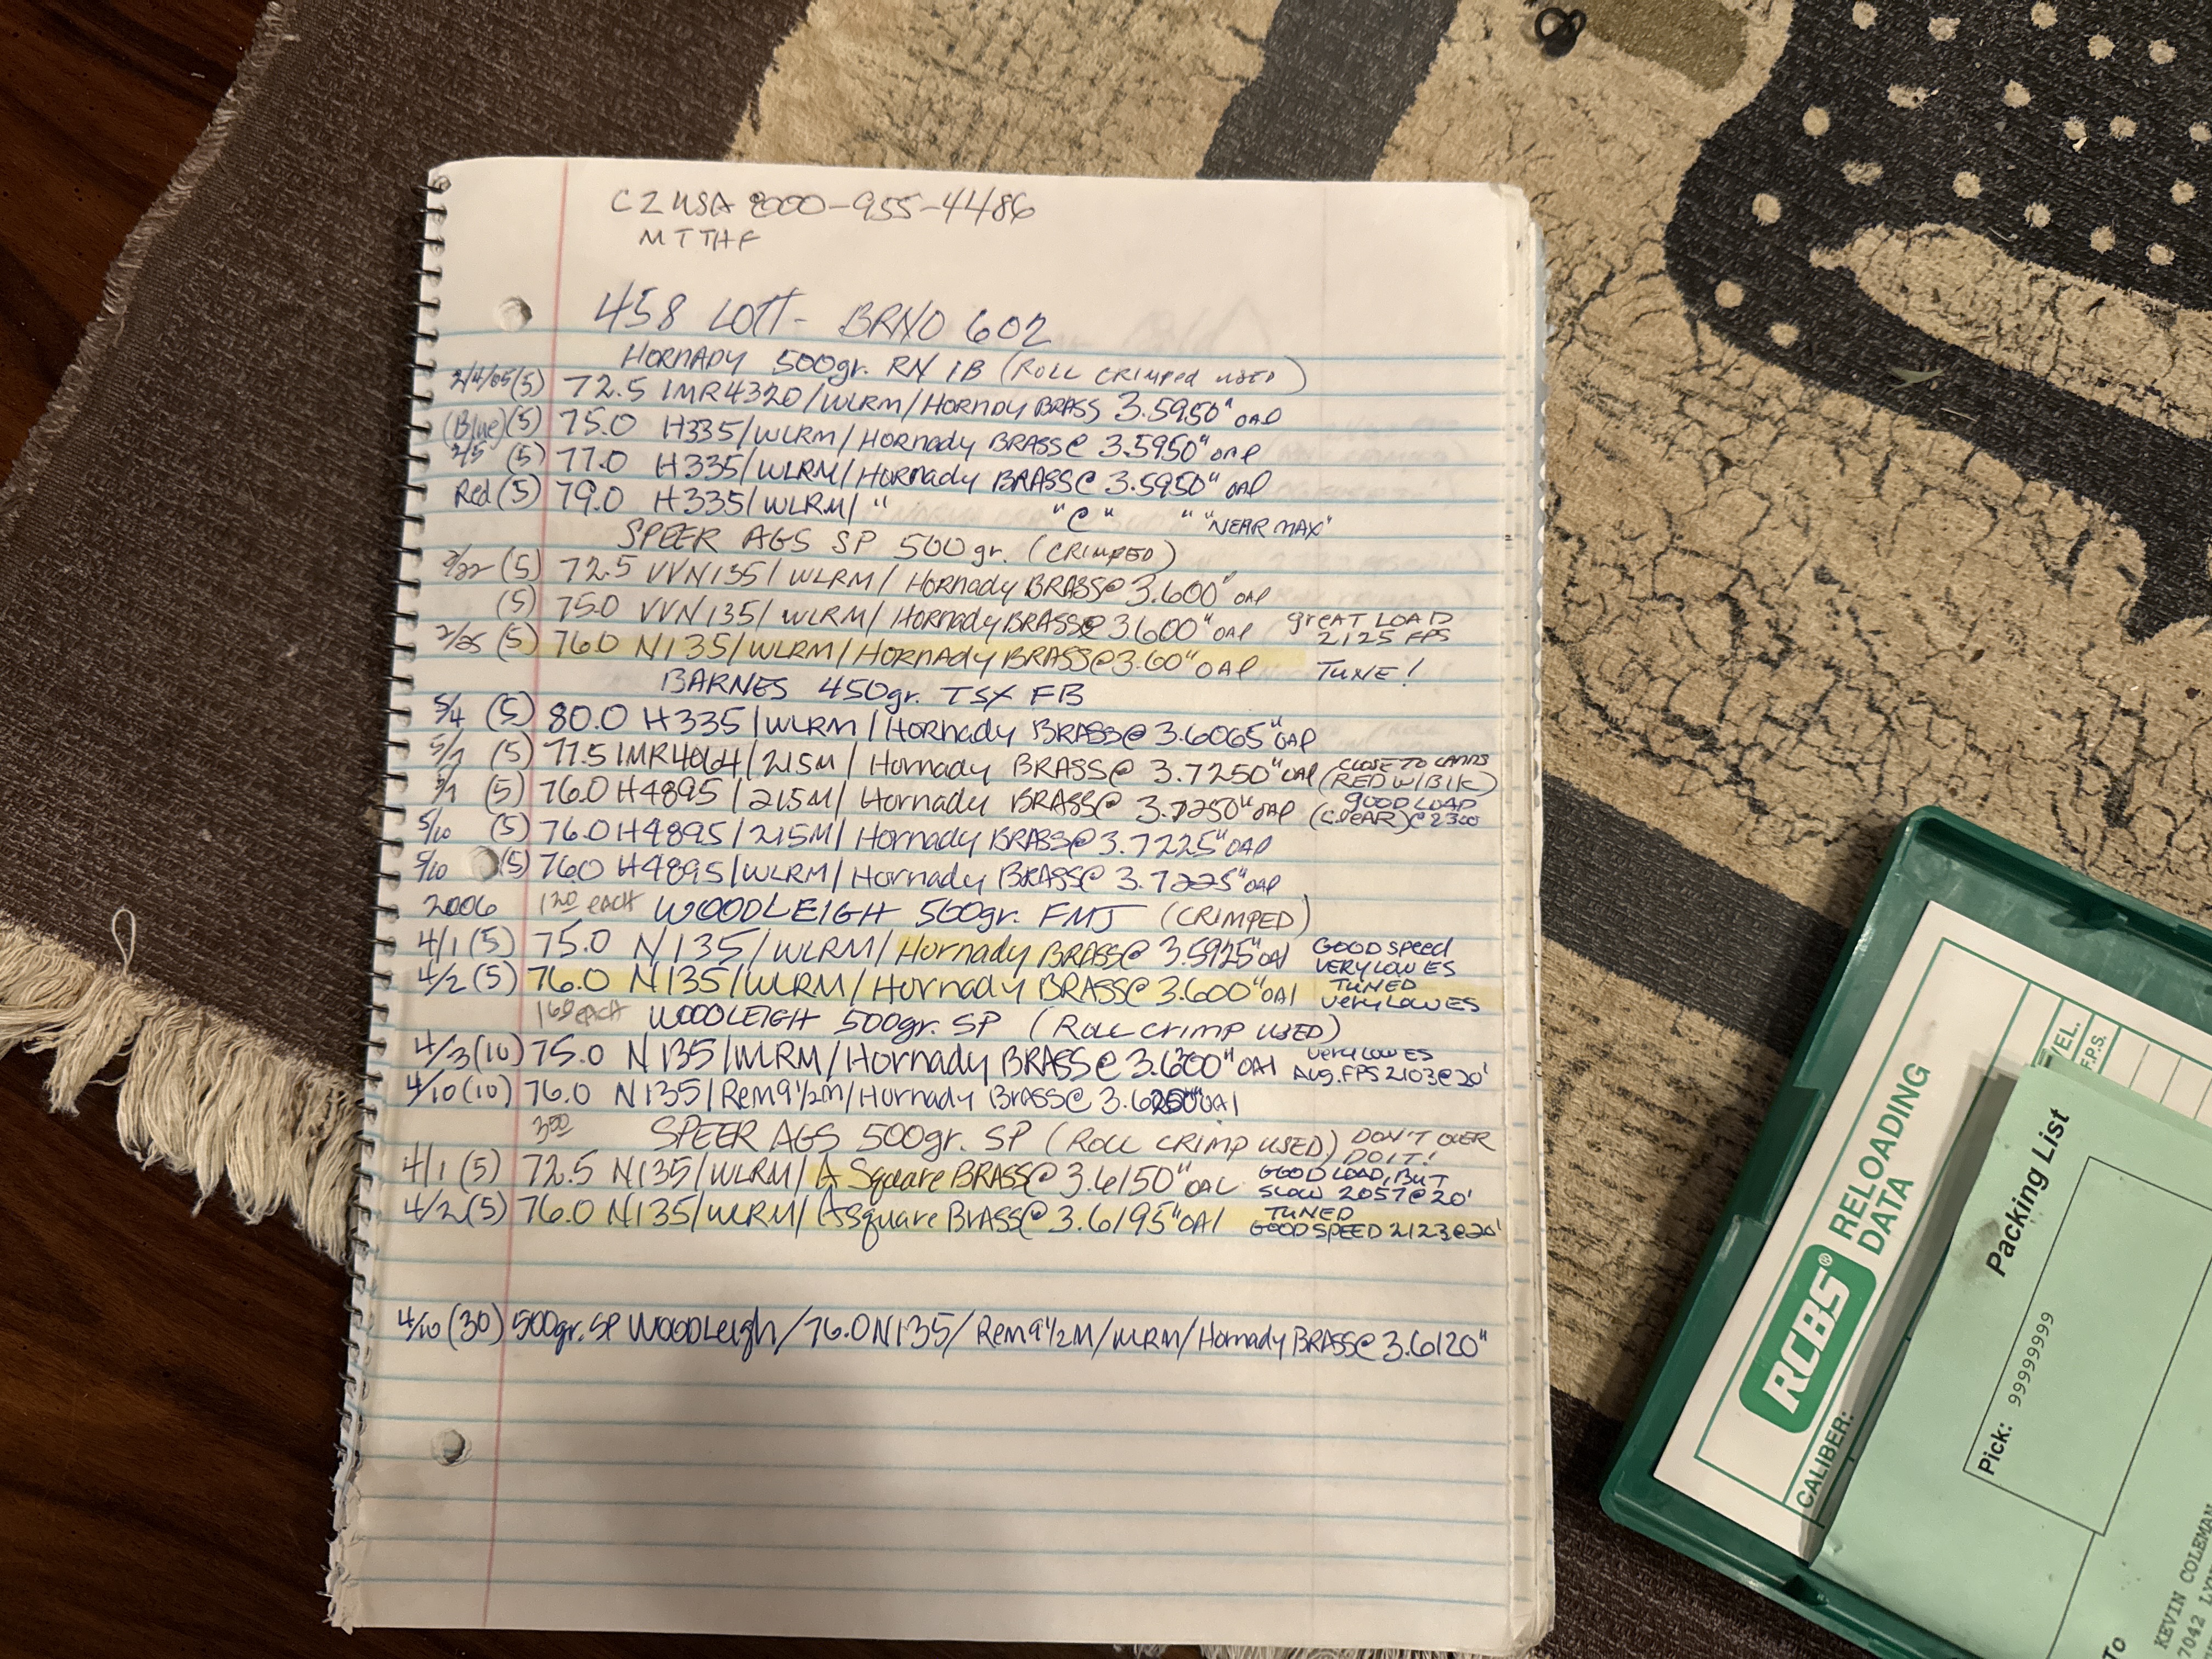 CZ USA 8000-955-4486
M T TH F
458 LOTT - BRNO 602
HORNADY 500gr. RN IB (ROLL CRIMPED USED)
2/4/05 (5) 72.5 IMR4320/WLRM/HORNDY BRASS 3.5950" OAL
(Blue) (5) 75.0 H335/WLRM/HORNADY BRASS@ 3.5950" OAL
2/5 (5) 77.0 H335/WLRM/HORNADY BRASS@ 3.5950" OAL
Red (5) 79.0 H335/WLRM/ " " @ " " "NEAR MAX"
SPEER AGS SP 500gr. (CRIMPED)
2/22 (5) 72.5 VVN135/WLRM/HORNADY BRASS@ 3.600" OAL
(5) 75.0 VVN135/WLRM/HORNADY BRASS@ 3.600" OAL great LOAD 2125 FPS
2/25 (5) 76.0 N135/WLRM/HORNADY BRASS@ 3.60" OAL TUNE!
BARNES 450gr. TSX FB
5/4 (5) 80.0 H335/WLRM/HORNADY BRASS@ 3.6065" OAL
5/7 (5) 77.5 IMR4064/215M/Hornady BRASS@ 3.7250" OAL CLOSE TO LANDS (RED W/BLK)
5/7 (5) 76.0 H4895/215M/Hornady BRASS@ 3.7250" OAL (CLEAR) GOOD LOAD @2300
5/10 (5) 76.0 H4895/215M/Hornady BRASS@ 3.7225" OAL
5/10 (5) 76.0 H4895/WLRM/Hornady BRASS@ 3.7225" OAL
2006 1 20 each WOODLEIGH 500gr. FMJ (CRIMPED)
4/1 (5) 75.0 N135/WLRM/Hornady BRASS@ 3.5925" OAL GOOD SPEED VERY LOW ES
4/2 (5) 76.0 N135/WLRM/Hornady BRASS@ 3.600" OAL TUNED VERY LOW ES
1 60 each WOODLEIGH 500gr. SP (ROLL CRIMP USED)
4/3 (10) 75.0 N135/WLRM/Hornady BRASS@ 3.600" OAL VERY LOW ES AVG. FPS 2103@20'
4/10 (10) 76.0 N135/Rem9½M/Hornady BRASS@ OAL
SPEER AGS 500gr. SP (ROLL CRIMP USED) DON'T OVER DO IT!
4/1 (5) 72.5 N135/WLRM/A Square BRASS@ 3.6150" OAL GOOD LOAD, BUT SLOW 2057@20'
4/2 (5) 76.0 N135/WLRM/A square BRASS@ 3.6195" OAL TUNED GOOD SPEED 2123@20'
4/10 (30) 500gr. SP WOODLeigh/76.0 N135/Rem9½M/WLRM/Hornady BRASS@ 3.6120"
RCBS® RELOADING DATA
CALIBER:
VEL. F.P.S.
Packing List
Pick: 99999999
To
KEVIN COLEMAN
7042